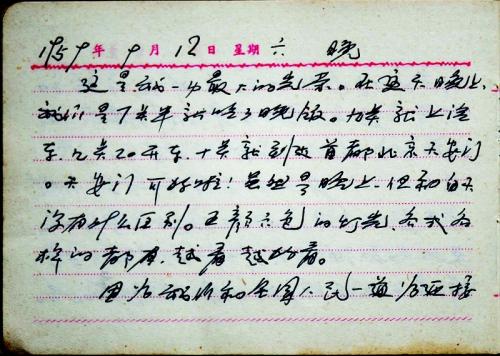 1959年9月12日 星期六 晚
这是我一生最大的光荣。在这天晚上,
我们是7点半就吃了晚饭。九点就上汽
车,九点20开车,十点就到了首都北京天安门
。天安门可好啦!虽然是晚上,但和白天
没有什么区别。五颜六色的灯光,各式各
样的都有,越看越好看。
因为我们和全国人民一道为迎接